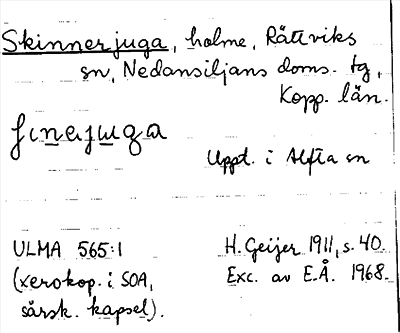 Skinnerjuga, holme, Rättviks
sn, Nedansiljans doms. tg,
Kopp. län.
Uppt. i Alfta sn
ULMA 565:1
(xerokop. i SOA,
särsk. kapsel).
H. Geijer 1911, s. 40.
Exc. av E.Å. 1968.